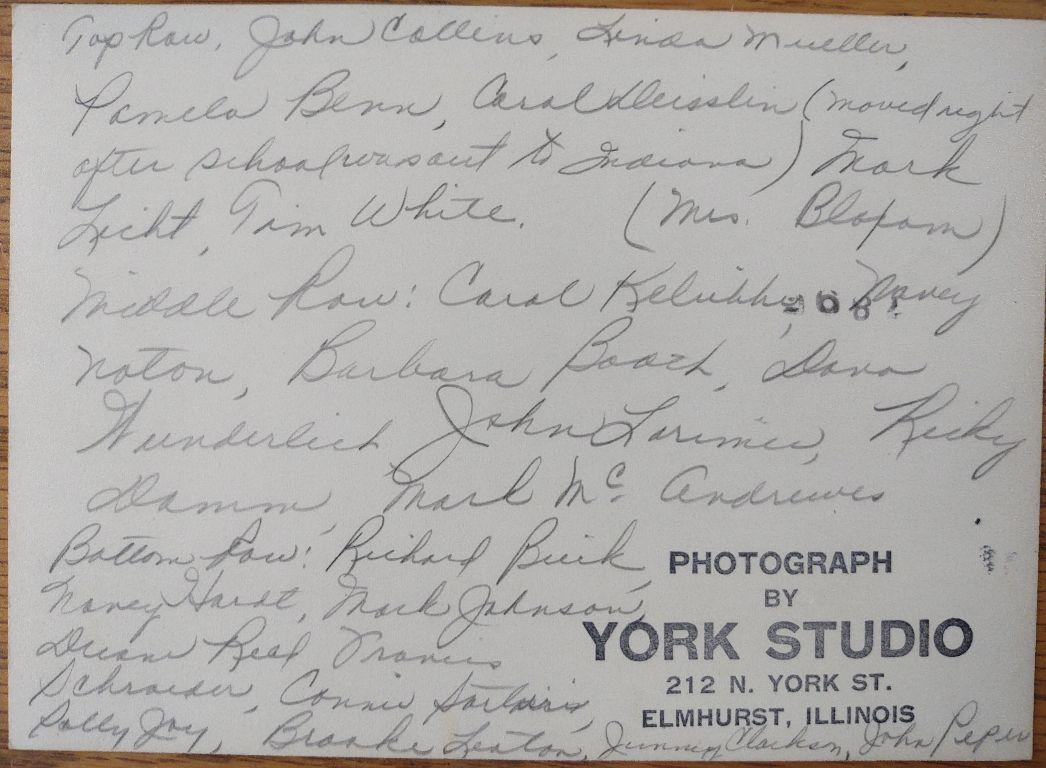 Top Row, John Collins, Linda Mueller,
Pamela Benn, Carol (moved right
after school was out to Indiana) Mark
Licht, Tim White. (Mrs. Blossom)
Middle Row: Carol Nancy
Noton, Barbara Booth, Dana
Wunderlich John Larimer, Ricky
Damm, Mark Mc Andrews
Bottom Row: Richard Buik,
Nancy Hardt, Mark Johnson,
Duane Reed Francis
Schroeder, Connie
Polly Joy, Brooke Leaton, Jimmy Clarkson, John Peper
PHOTOGRAPH
BY
YORK STUDIO
212 N. YORK ST.
ELMHURST, ILLINOIS